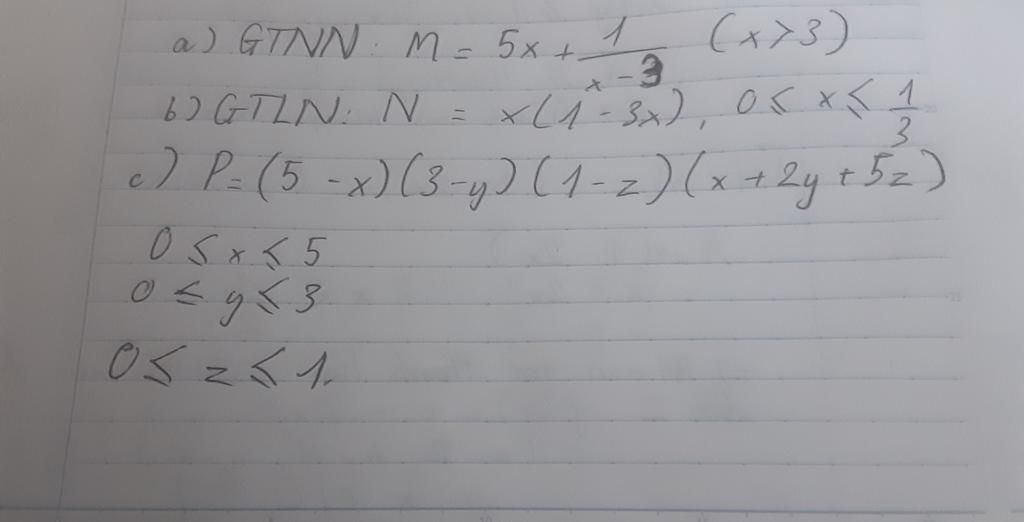 a) GTNN: M = 5x + 1/(x - 3) (x > 3)
b) GTLN: N = x(1 - 3x), 0 ≤ x ≤ 1/3
c) P = (5 - x)(3 - y)(1 - z)(x + 2y + 5z)
0 ≤ x ≤ 5
0 ≤ y ≤ 3
0 ≤ z ≤ 1.